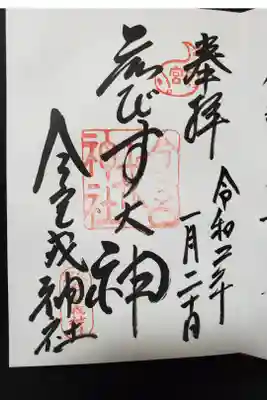 奉拝
宮
令和二年
一月二十日
ゑびす大神
今宮戎神社